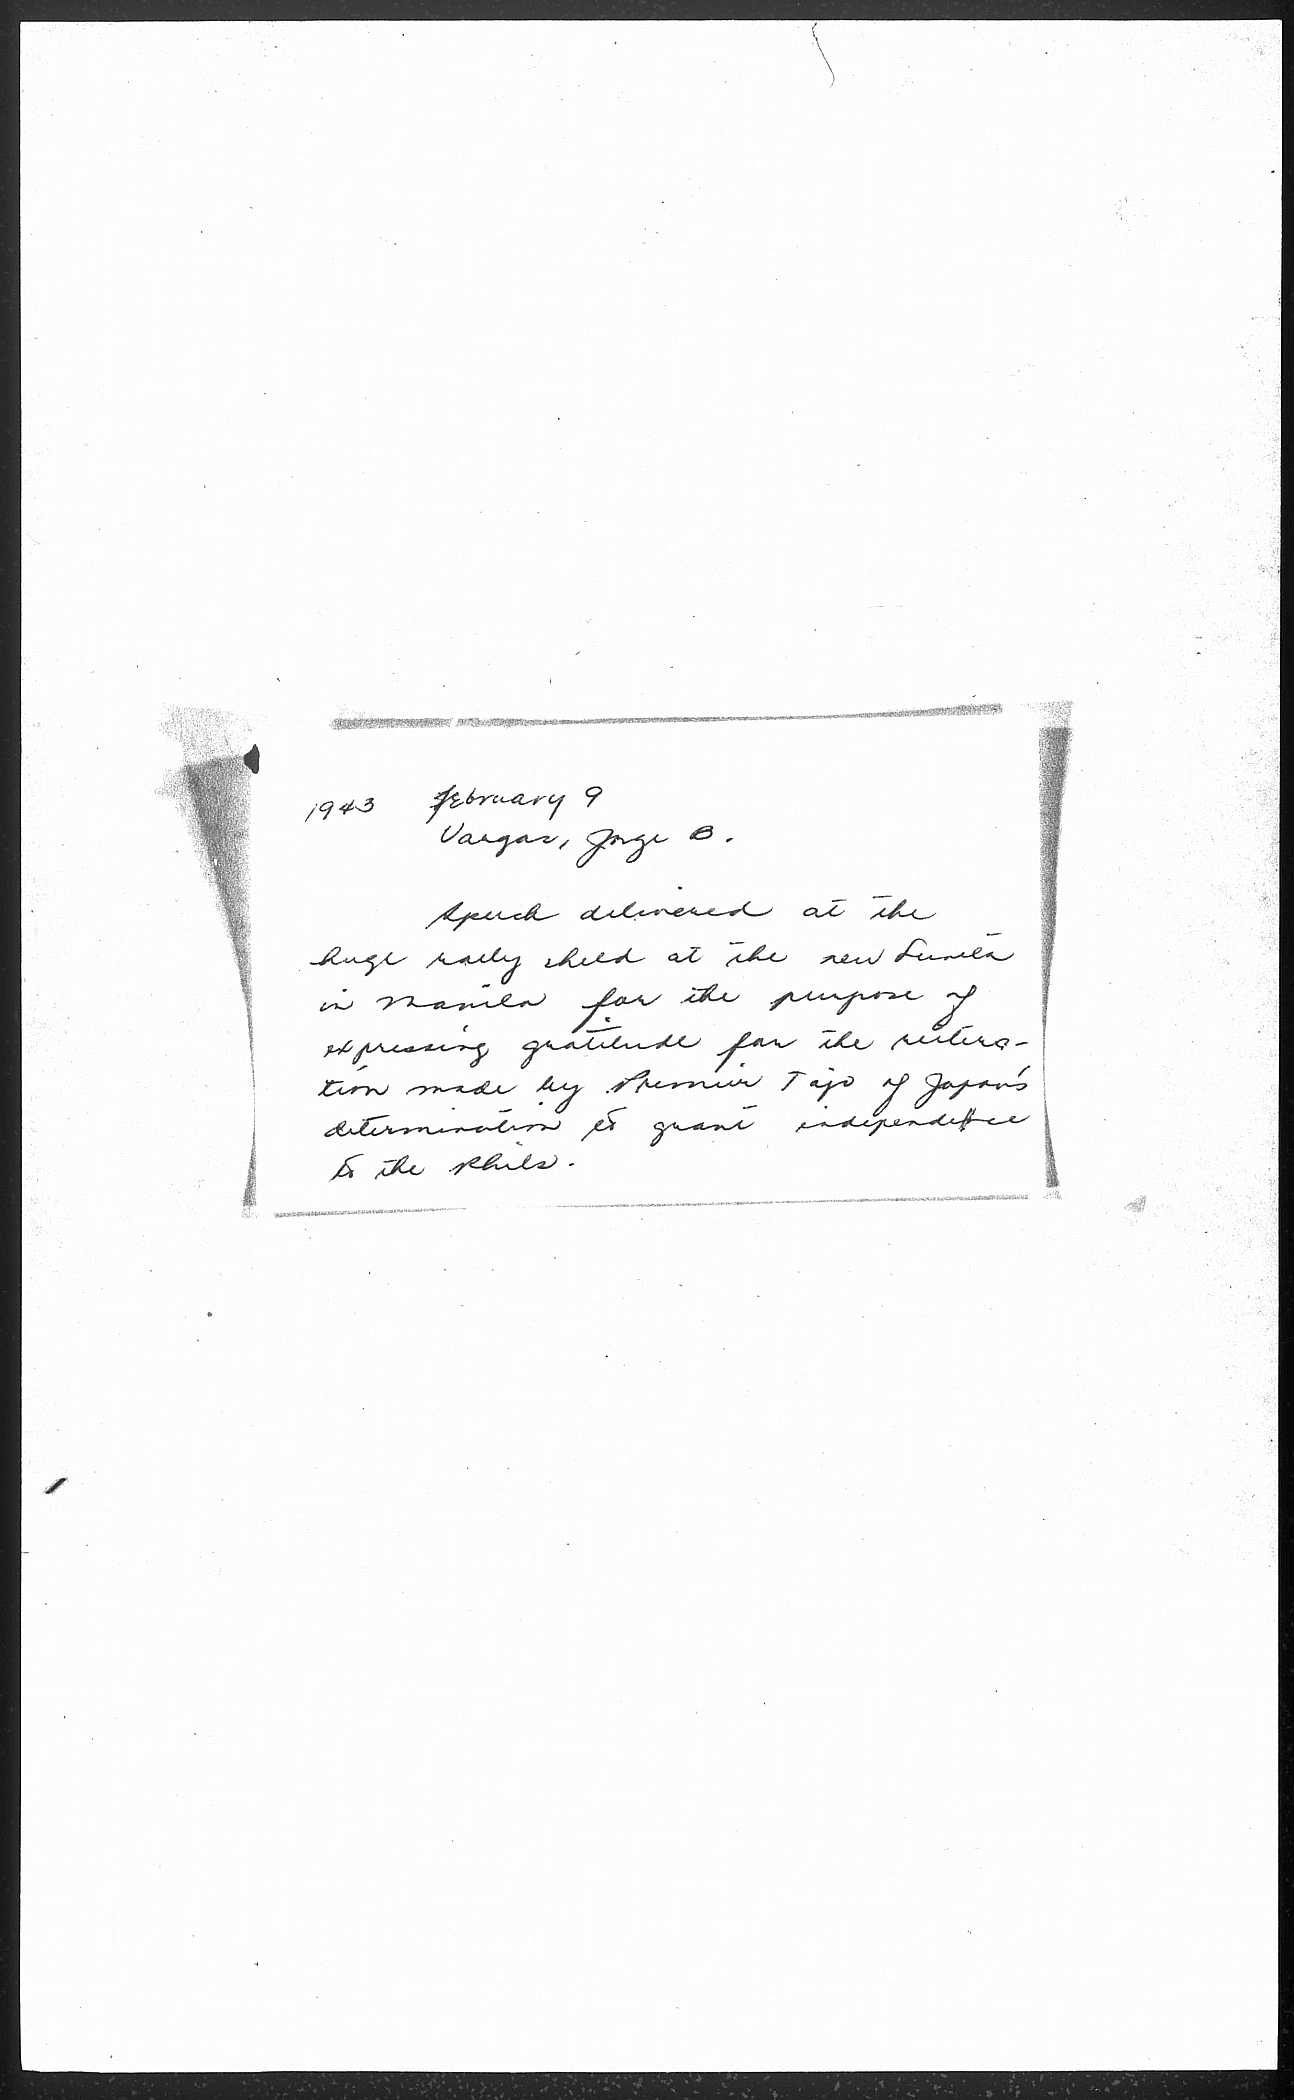 1943 February 9
Vargas, Jorge B.
Speech delivered at the
huge rally held at the new Luneta
in Manila for the purpose of
expressing gratitude for the reitera-
tion made by Premier Tojo of Japan's
determination to grant independence
to the Phils.